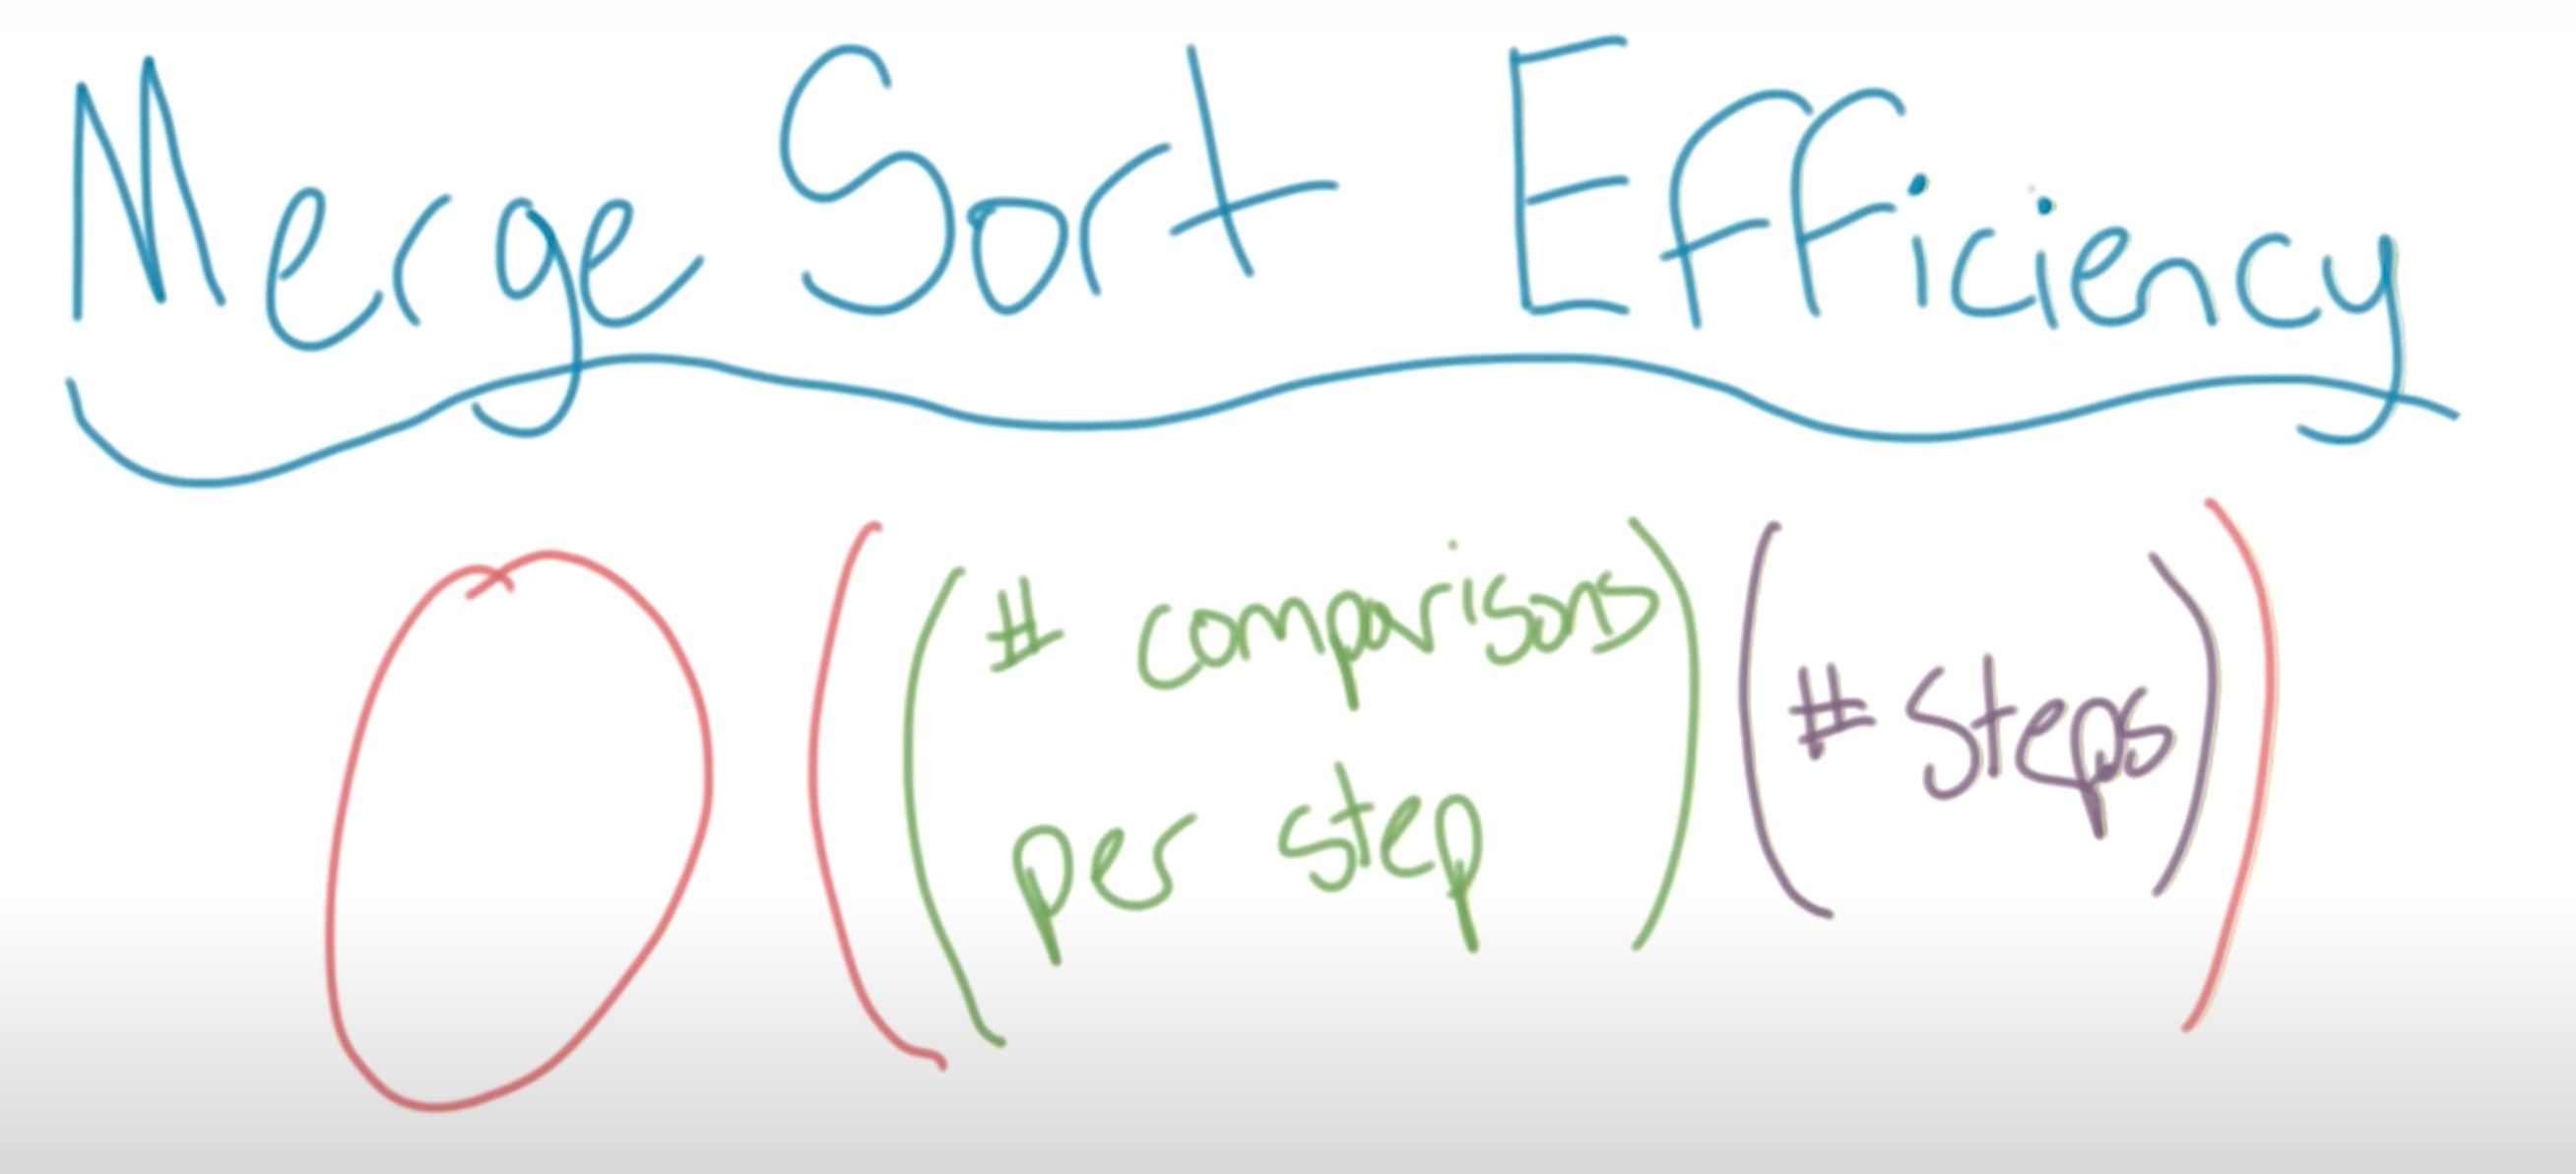 Merge Sort Efficiency
O((# comparisons per step)(# Steps))